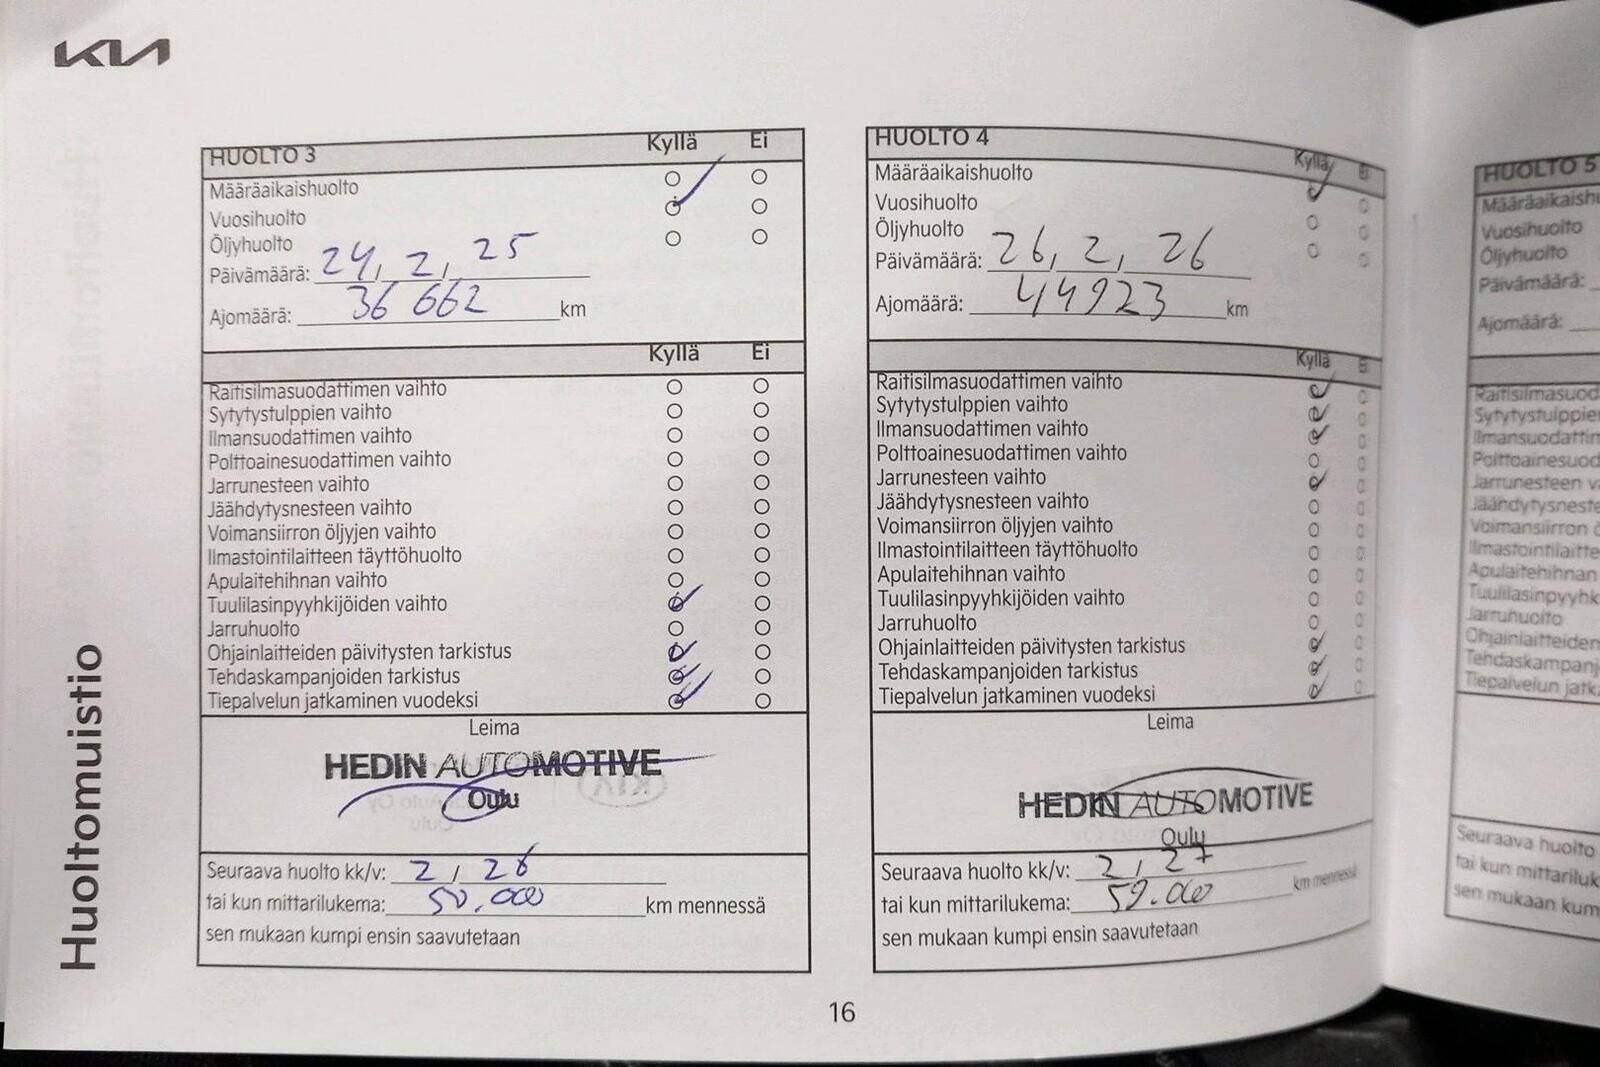 KIA
Huoltomuistio
HUOLTO 3 Kyllä Ei
Määräaikaishuolto
Vuosihuolto
Öljyhuolto
Päivämäärä: 24, 2, 25
Ajomäärä: 36 662 km
Kyllä Ei
Raitisilmasuodattimen vaihto
Sytytystulppien vaihto
Ilmansuodattimen vaihto
Polttoainesuodattimen vaihto
Jarrunesteen vaihto
Jäähdytysnesteen vaihto
Voimansiirron öljyjen vaihto
Ilmastointilaitteen täyttöhuolto
Apulaitehihnan vaihto
Tuulilasinpyyhkijöiden vaihto
Jarruhuolto
Ohjainlaitteiden päivitysten tarkistus
Tehdaskampanjoiden tarkistus
Tiepalvelun jatkaminen vuodeksi
Leima
HEDIN AUTOMOTIVE
Oulu
Seuraava huolto kk/v: 2, 26
tai kun mittarilukema: 50.000 km mennessä
sen mukaan kumpi ensin saavutetaan
HUOLTO 4 Kyllä Ei
Määräaikaishuolto
Vuosihuolto
Öljyhuolto
Päivämäärä: 26, 2, 26
Ajomäärä: 44923 km
Kyllä Ei
Raitisilmasuodattimen vaihto
Sytytystulppien vaihto
Ilmansuodattimen vaihto
Polttoainesuodattimen vaihto
Jarrunesteen vaihto
Jäähdytysnesteen vaihto
Voimansiirron öljyjen vaihto
Ilmastointilaitteen täyttöhuolto
Apulaitehihnan vaihto
Tuulilasinpyyhkijöiden vaihto
Jarruhuolto
Ohjainlaitteiden päivitysten tarkistus
Tehdaskampanjoiden tarkistus
Tiepalvelun jatkaminen vuodeksi
Leima
HEDIN AUTOMOTIVE
Oulu
Seuraava huolto kk/v: 2, 27
tai kun mittarilukema: 59.000 km mennessä
sen mukaan kumpi ensin saavutetaan
16
HUOLTO 5
Määräaikaishu
Vuosihuolto
Öljyhuolto
Päivämäärä:
Ajomäärä:
Raitisilmasuod
Sytytystulppie
Ilmansuodattin
Polttoainesuod
Jarrunesteen v
Jäähdytysneste
Voimansiirron ö
Ilmastointilaitte
Apulaitehihnan
Tuulilasinpyyhk
Jarruhuolto
Ohjainlaitteiden
Tehdaskampan
Tiepalvelun jatk
Seuraava huolto
tai kun mittariluk
sen mukaan kum